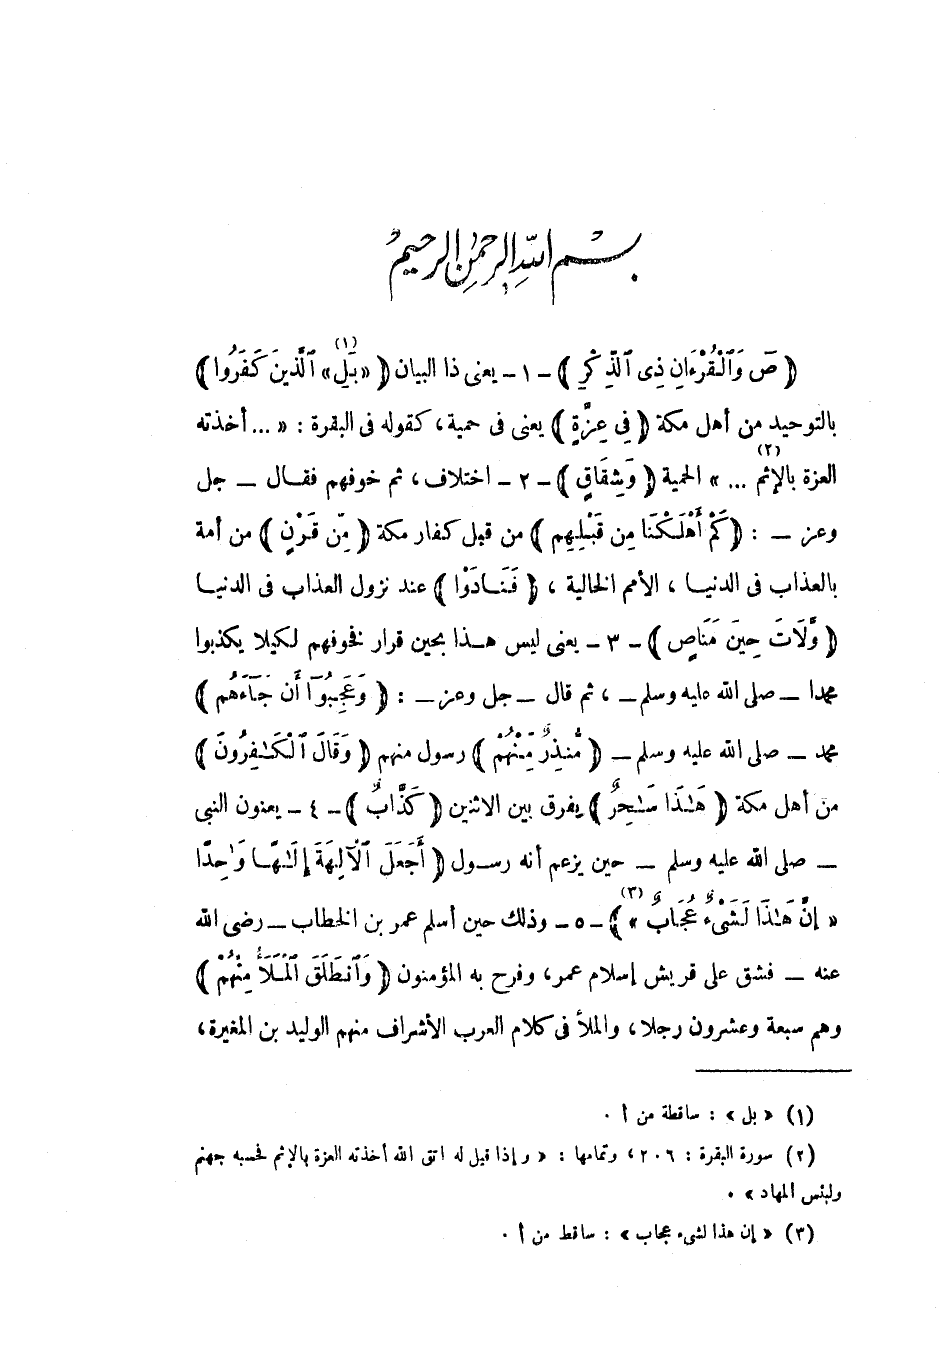 بسم الله الرحمن الرحيم
﴿ صٓ وَٱلْقُرْءَانِ ذِى ٱلذِّكْرِ ﴾ ـ ١ ـ يعنى ذا البيان ﴿ «بَلِ(١)» ٱلَّذِينَ كَفَرُوا ﴾
بالتوحيد من أهل مكة ﴿ فِى عِزَّةٍ ﴾ يعنى فى حمية، كقوله فى البقرة : « ... أخذته
العزة بالإثم ... (٢)» الحمية ﴿ وَشِقَاقٍ ﴾ ـ ٢ ـ اختلاف، ثم خوفهم فقال ـ جل
وعز ـ : ﴿ كَمْ أَهْلَكْنَا مِن قَبْلِهِم ﴾ من قبل كفار مكة ﴿ مِّن قَرْنٍ ﴾ من أمة
بالعذاب فى الدنيا ، الأمم الخالية ، ﴿ فَنَادَوْا ﴾ عند نزول العذاب فى الدنيا
﴿ وَّلَاتَ حِينَ مَنَاصٍ ﴾ ـ ٣ ـ يعنى ليس هذا بحين قرار فخوفهم لكيلا يكذبوا
محمدا ـ صلى الله عليه وسلم ـ ، ثم قال ـ جل وعز ـ : ﴿ وَعَجِبُوٓا أَن جَآءَهُم ﴾
محمد ـ صلى الله عليه وسلم ـ ﴿ مُّنذِرٌ مِّنْهُمْ ﴾ رسول منهم ﴿ وَقَالَ ٱلْكَـٰفِرُونَ ﴾
من أهل مكة ﴿ هَـٰذَا سَـٰحِرٌ ﴾ يفرق بين الاثنين ﴿ كَذَّابٌ ﴾ ـ ٤ ـ يعنون النبى
ـ صلى الله عليه وسلم ـ حين يزعم أنه رسول ﴿ أَجَعَلَ ٱلْآلِهَةَ إِلَـٰهًا وَٰحِدًا
« إِنَّ هَـٰذَا لَشَىْءٌ عُجَابٌ » (٣)﴾ ـ ٥ ـ وذلك حين أسلم عمر بن الخطاب ـ رضى الله
عنه ـ فشق على قريش إسلام عمر، وفرح به المؤمنون ﴿ وَٱنطَلَقَ ٱلْمَلَأُ مِنْهُمْ ﴾
وهم سبعة وعشرون رجلا، والملأ فى كلام العرب الأشراف منهم الوليد بن المغيرة،
(١) « بل » : ساقطة من أ .
(٢) سورة البقرة : ٢٠٦، وتمامها : « وإذا قيل له اتق الله أخذته العزة بالإثم فحسبه جهنم
ولبئس المهاد » .
(٣) « إن هذا لشىء عجاب » : ساقط من أ .